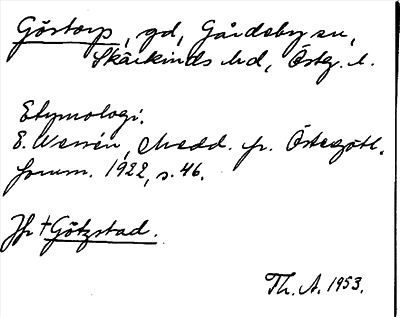 Göstorp, gd, Gårdeby sn,
Skärkinds hd, Östg. l.
Etymologi.
E. Wessén, Medd. fr. Östergötl.
fornm. 1922, s. 46.
Jfr † Götzstad.
Th. A. 1953.